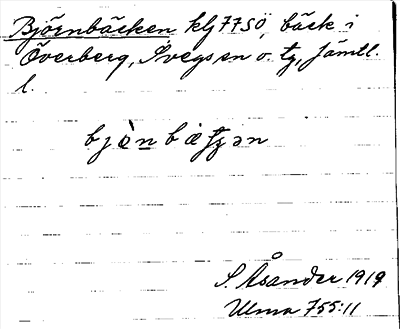 Björnbäcken klj 77SÖ, bäck i
Överberg, Svegs sn o. tg, Jämtl.
l.
bjὼn bæʈʂən
S. Åsander 1919
Ulma 755:11